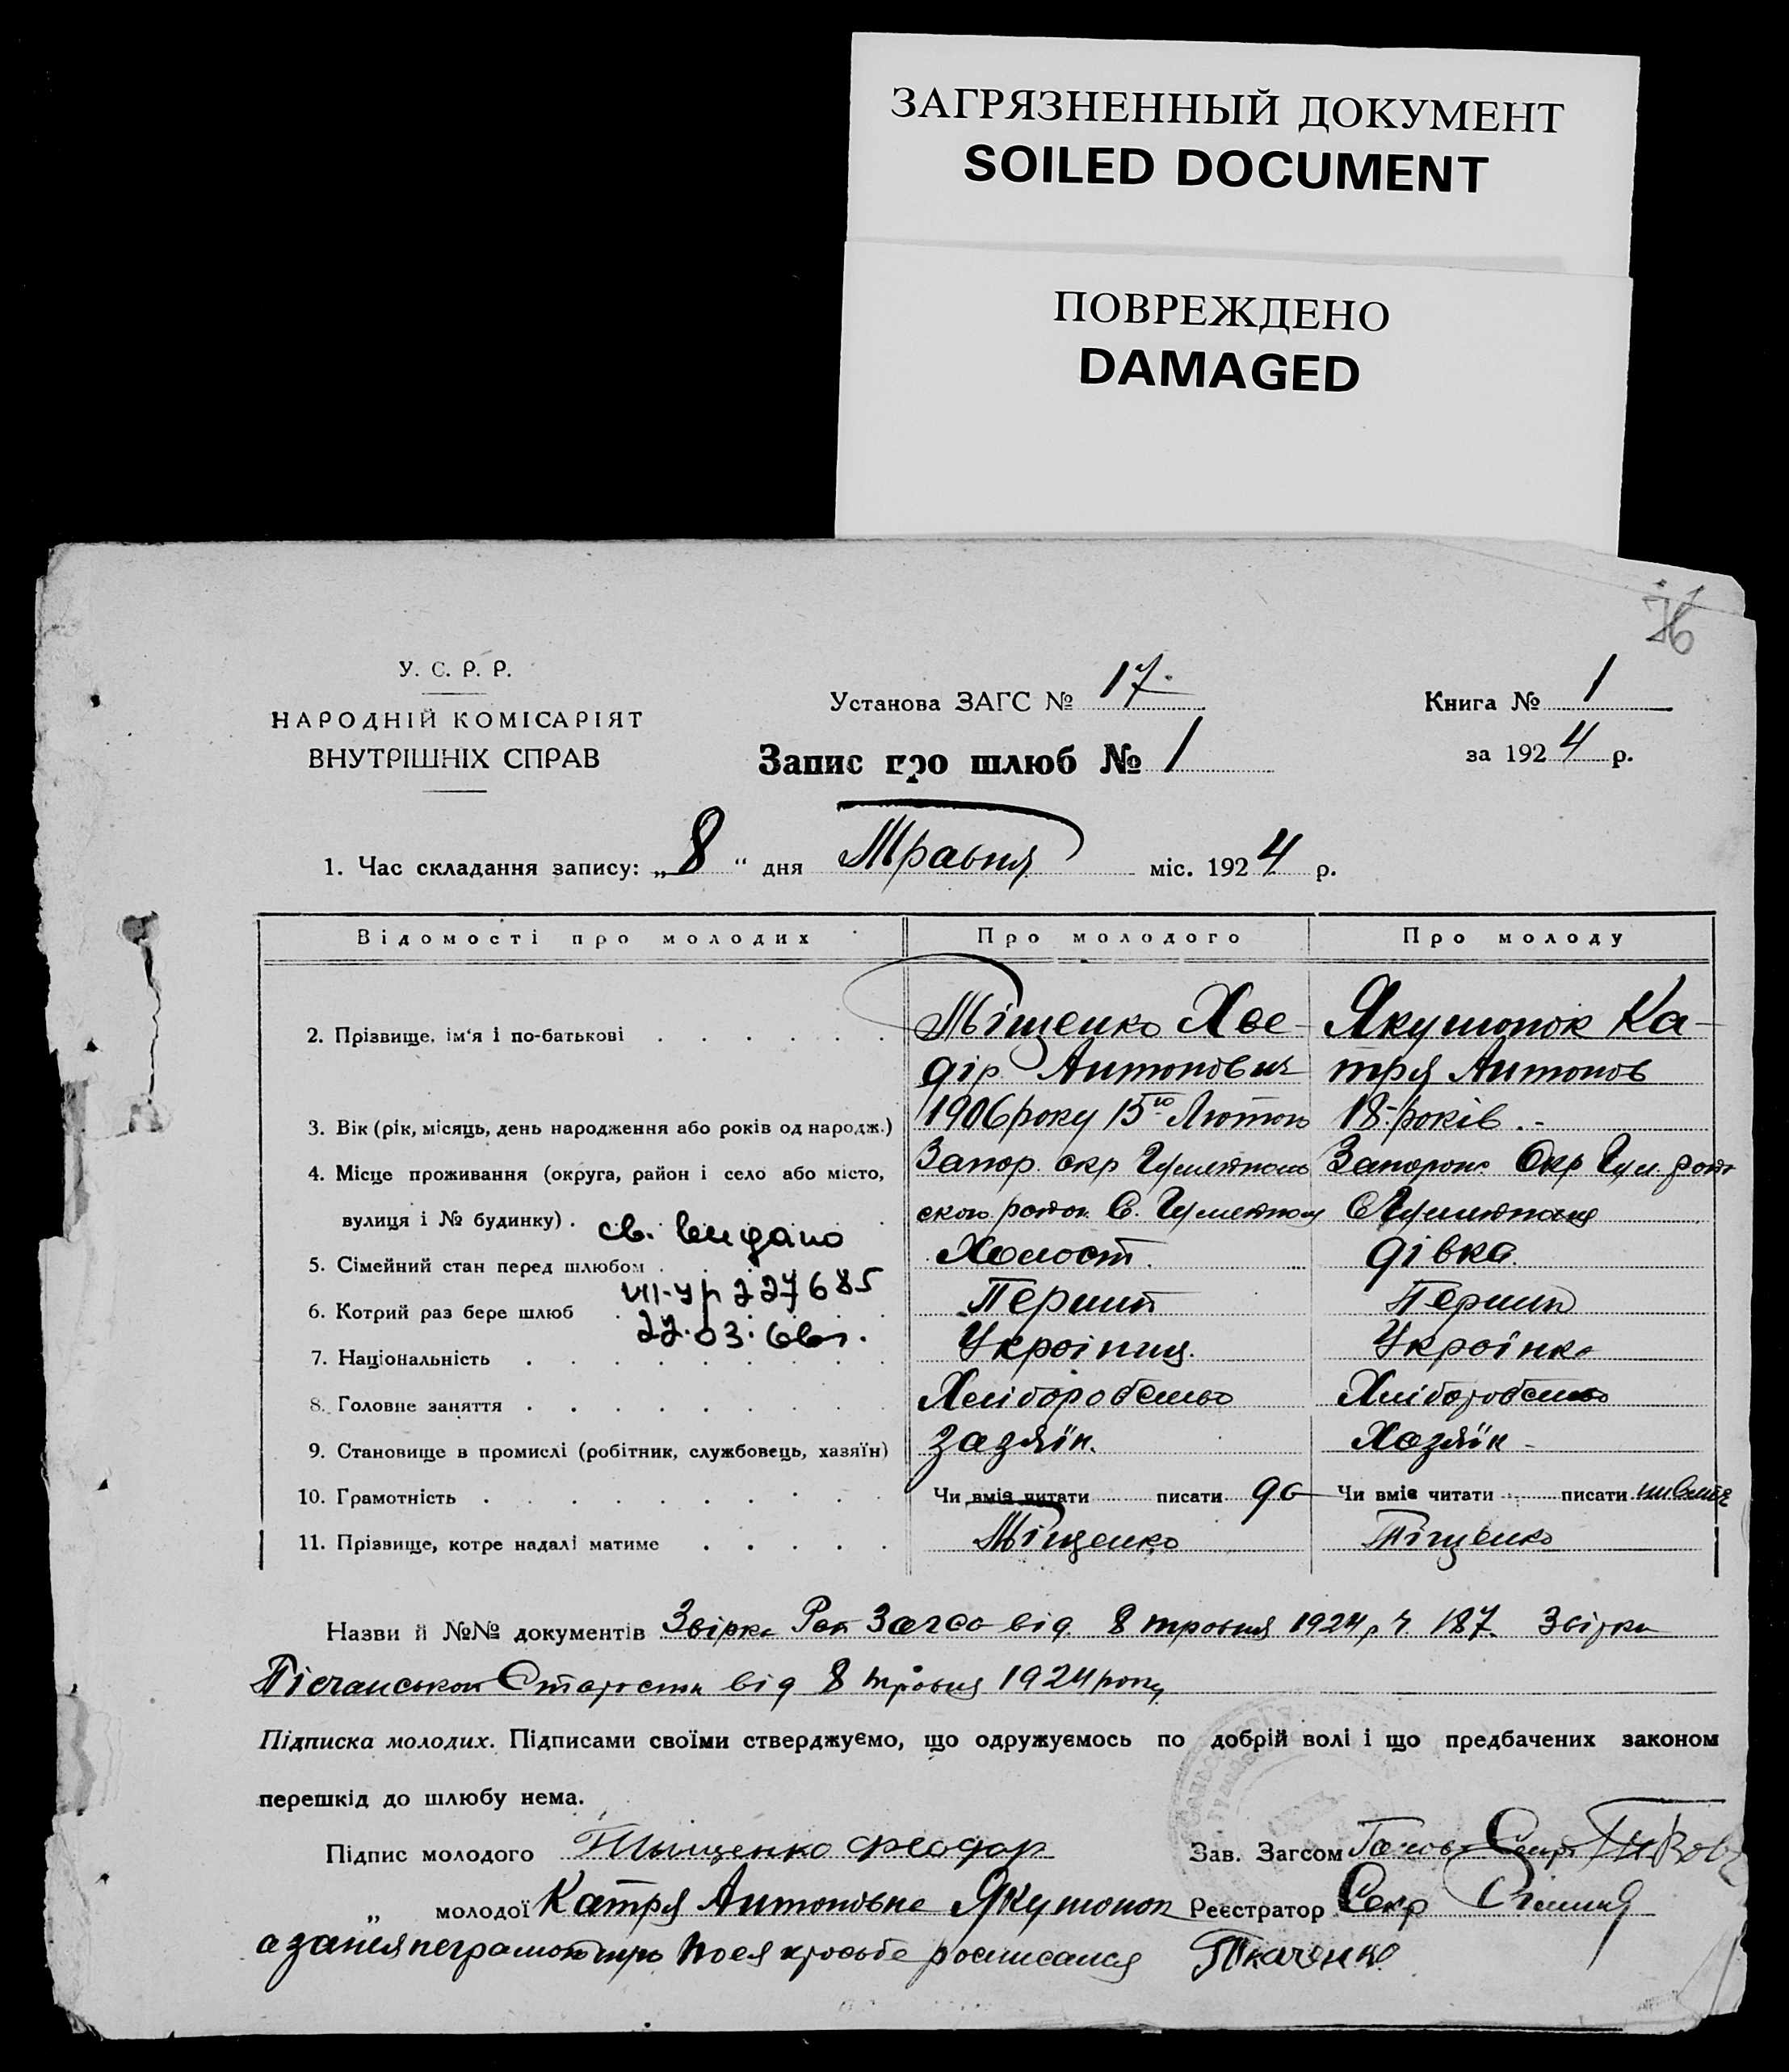 ЗАГРЯЗНЕННЫЙ ДОКУМЕНТ
SOILED DOCUMENT
ПОВРЕЖДЕНО
DAMAGED
76
У. С. Р. Р.
НАРОДНІЙ КОМІСАРІЯТ
ВНУТРІШНІХ СПРАВ
Установа ЗАГС № 17.
Книга № 1
за 1924 р.
Запис про шлюб № 1
1. Час складання запису: „8“ дня Травня міс. 1924 р.
Відомості про молодих Про молодого Про молоду
2. Прізвище, ім'я і по-батькові
Тіщенко Хве-
дір Антонович
Якушонок Ка-
тря Антонов
3. Вік (рік, місяць, день народження або років од народж.) 1906 року 15го Лютого 18 років.-
4. Місце проживання (округа, район і село або місто,
вулиця і № будинку).
Запор. окр
ского район. С.
Запорож. Окр
св. видано
5. Сімейний стан перед шлюбом Холост. дівка.
VII-УР 227685
6. Котрий раз бере шлюб Перший Перший
22.03.66г.
7. Національність Українец. Українка
8. Головне заняття Хліборобство Хліборобство
9. Становище в промислі (робітник, службовець, хазяїн) Хазяїн. Хазяїн -
10. Грамотність Чи вміє читати писати да Чи вміє читати писати
11. Прізвище, котре надалі матиме Тіщенко Тіщенко
Назви й №№ документів Звірка Рай Загса від 8 травня 1924 р Ч. 187. Звірка
Пісчанської від 8 травня 1924 року
Підписка молодих. Підписами своїми стверджуємо, що одружуємось по добрій волі і що предбачених законом
перешкід до шлюбу нема.
Підпис молодого Тыщенко Феодор
Зав. Загсом
„ молодої Катря Антоновна Якушонок
Реєстратор Секр
а за нея неграмотную по ея просьбе росписался Ткаченко